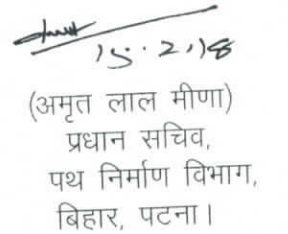 15.2.18
(अमृत लाल मीणा)
प्रधान सचिव,
पथ निर्माण विभाग,
बिहार, पटना।